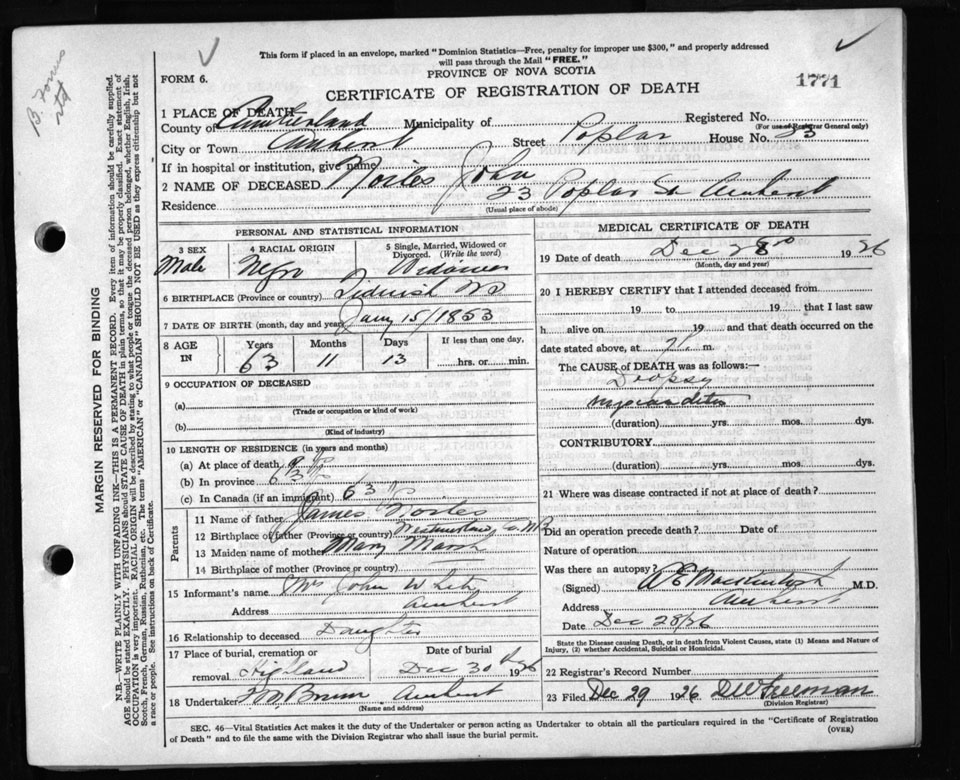 B. Forms
This form if placed in an envelope, marked "Dominion Statistics—Free, penalty for improper use $300," and properly addressed
will pass through the Mail "FREE."
FORM 6.
PROVINCE OF NOVA SCOTIA
1771
CERTIFICATE OF REGISTRATION OF DEATH
1 PLACE OF DEATH
Registered No.
(For use of Registrar General only)
County of Cumberland Municipality of
City or Town Amherst Street Poplar House No. 23
If in hospital or institution, give name
2 NAME OF DECEASED John
Residence 23 Poplar St Amherst
(Usual place of abode)
PERSONAL AND STATISTICAL INFORMATION
3 SEX Male
4 RACIAL ORIGIN Negro
5 Single, Married, Widowed or Divorced. (Write the word) Widower
6 BIRTHPLACE (Province or country) Tidnish NS
7 DATE OF BIRTH (month, day and year) Jany 15/1853
8 AGE IN Years 63 Months 11 Days 13 If less than one day, hrs. or min.
9 OCCUPATION OF DECEASED
(a)
(Trade or occupation or kind of work)
(b)
(Kind of industry)
10 LENGTH OF RESIDENCE (in years and months)
(a) At place of death
(b) In province 63 yrs
(c) In Canada (if an immigrant) 63 yrs
Parents
11 Name of father James
12 Birthplace of father (Province or country) Westmorland Co. NB
13 Maiden name of mother Mary Marsh
14 Birthplace of mother (Province or country)
15 Informant's name Mrs John White
Address Amherst
16 Relationship to deceased Daughter
17 Place of burial, cremation or removal Highland
Date of burial Dec 30th 1926
18 Undertaker Brown Amherst
(Name and address)
MEDICAL CERTIFICATE OF DEATH
19 Date of death Dec 28 1926
(Month, day and year)
20 I HEREBY CERTIFY that I attended deceased from
19 to 19 that I last saw
h alive on 19 and that death occurred on the
date stated above, at m.
The CAUSE of DEATH was as follows:—
Dropsy
myocarditis
(duration) yrs. mos. dys.
CONTRIBUTORY
(duration) yrs. mos. dys.
21 Where was disease contracted if not at place of death?
Did an operation precede death? Date of
Nature of operation
Was there an autopsy?
(Signed) Mackintosh M.D.
Address Amherst
Date Dec 28/26
State the Disease causing Death, or in death from Violent Causes, state (1) Means and Nature of
Injury, (2) whether Accidental, Suicidal or Homicidal.
22 Registrar's Record Number
23 Filed Dec 29 1926 Freeman
(Division Registrar)
SEC. 46—Vital Statistics Act makes it the duty of the Undertaker or person acting as Undertaker to obtain all the particulars required in the "Certificate of Registration
of Death" and to file the same with the Division Registrar who shall issue the burial permit.
(OVER)
MARGIN RESERVED FOR BINDING
N.B.—WRITE PLAINLY WITH UNFADING INK—THIS IS A PERMANENT RECORD. Every item of information should be carefully supplied.
AGE should be stated EXACTLY. PHYSICIANS should STATE CAUSE OF DEATH in plain terms, so that it may be properly classified. Exact statement of
OCCUPATION is very important. RACIAL ORIGIN will be described by stating to what people or tongue the deceased person belonged, whether English, Irish,
Scotch, French, German, Russian, Ruthenian, etc. The terms "AMERICAN" or CANADIAN" SHOULD NOT BE USED as they express citizenship but not
a race or people. See instructions on back of Certificate.